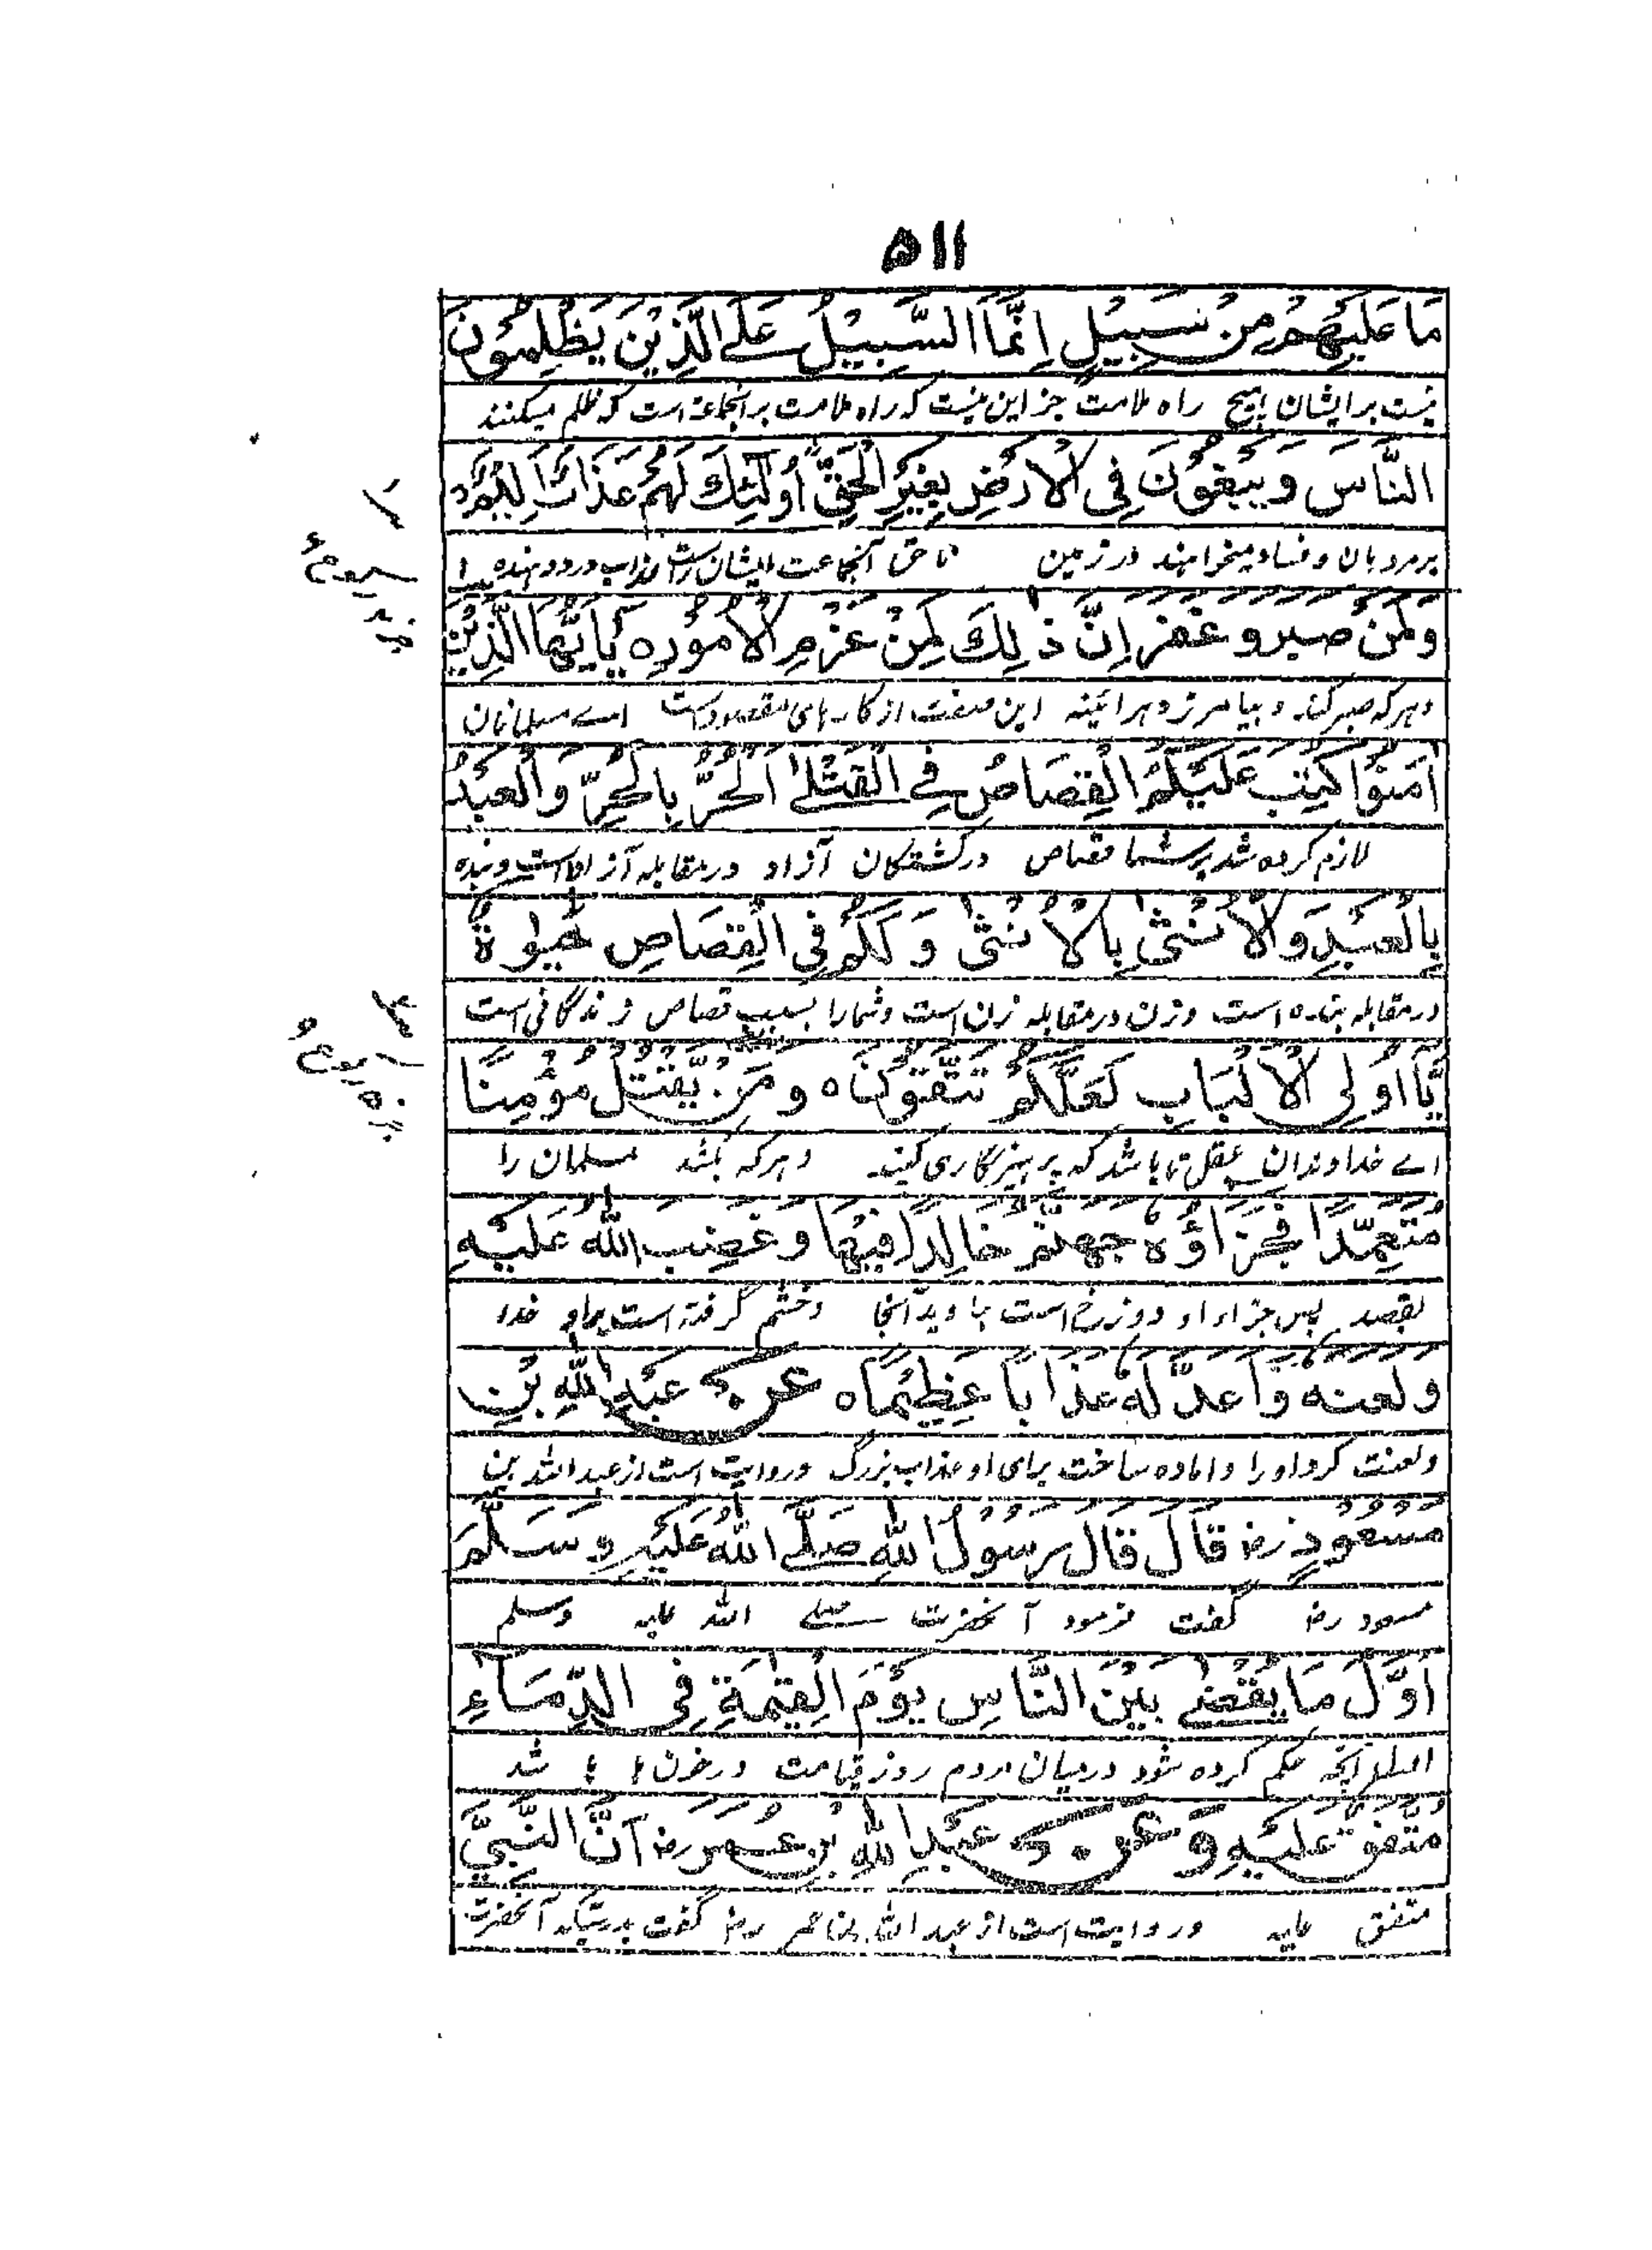 ۵۱۱
مَا عَلَيْهِمْ مِنْ سَبِيْلٍ اِنَّمَا السَّبِيْلُ عَلَے الَّذِيْنَ يَظْلِمُوْنَ
نیست بر ایشان ہیچ راه ملامت جز این نیست که راه ملامت بر آنجماعة است که ظلم میکنند
النَّاسَ وَيَبْغُوْنَ فِى الْاَرْضِ بِغَيْرِ الْحَقِّ اُولٰٓئِكَ لَهُمْ عَذَابٌ اَلِيْمٌ
بر مردمان و فساد میخواهند در زمین ناحق آنجماعت ایشان راست عذاب درد دهنده
وَلَمَنْ صَبَرَ وَغَفَرَ اِنَّ ذٰلِكَ لَمِنْ عَزْمِ الْاُمُوْرِه يَٓاَيُّهَا الَّذِيْنَ
و هر که صبر کند و بیامرزد هر آئینه این صفت از کارهای مقصود است اے مسلمانان
اٰمَنُوْا كُتِبَ عَلَيْكُمُ الْقِصَاصُ فِے الْقَتْلٰے اَلْحُرُّ بِالْحُرِّ وَالْعَبْدُ
لازم کرده شد بر شما قصاص در کشتگان آزاد در مقابله آزاد است و بنده
بِالْعَبْدِ وَالْاُنْثٰى بِالْاُنْثٰى وَلَكُمْ فِى الْقِصَاصِ حَيٰوةٌ
در مقابله بنده است و زن در مقابله زن است و شمارا بسبب قصاص زندگانی است
يَّٓا اُولِى الْاَلْبَابِ لَعَلَّكُمْ تَتَّقُوْنَ ه وَمَنْ يَّقْتُلْ مُؤْمِنًا
اے خداوندان عقل تا باشد که پرهیزگاری کنید و هر که بکشد مسلمان را
مُتَعَمِّدًا فَجَزَاؤُهٗ جَهَنَّمُ خَالِدًا فِيْهَا وَغَضِبَ اللّٰهُ عَلَيْهِ
بقصد پس جزاء او دوزخ است جاوید آنجا و خشم گرفته است بر او خدا
وَلَعَنَهٗ وَاَعَدَّ لَهٗ عَذَابًا عَظِيْمًا ه عَنْ عَبْدِ اللّٰهِ بْنِ
و لعنت کرد او را و اماده ساخت برای او عذاب بزرگ و روایت است از عبد الله بن
مَسْعُوْدٍ رض قَالَ قَالَ رَسُوْلُ اللّٰهِ صَلَّے اللّٰهُ عَلَيْهِ وَسَلَّمَ
مسعود رض گفت فرمود آنحضرت صلے الله علیه وسلم
اَوَّلُ مَا يُقْضٰے بَيْنَ النَّاسِ يَوْمَ الْقِيٰمَةِ فِى الدِّمَاءِ
آنچه حکم کرده شود درمیان مردم روز قیامت در خون ها شد
مُتَّفَقٌ عَلَيْهِ وَعَنْ عَبْدِ اللّٰهِ بْنِ عُمَرَ رض اَنَّ النَّبِىَّ
متفق علیه و روایت است از عبد الله بن عمر رض گفت بدرستیکه آنحضرت